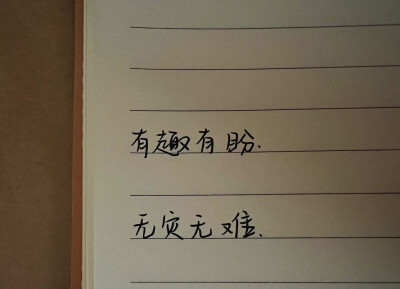 有趣有盼.
无灾无难.